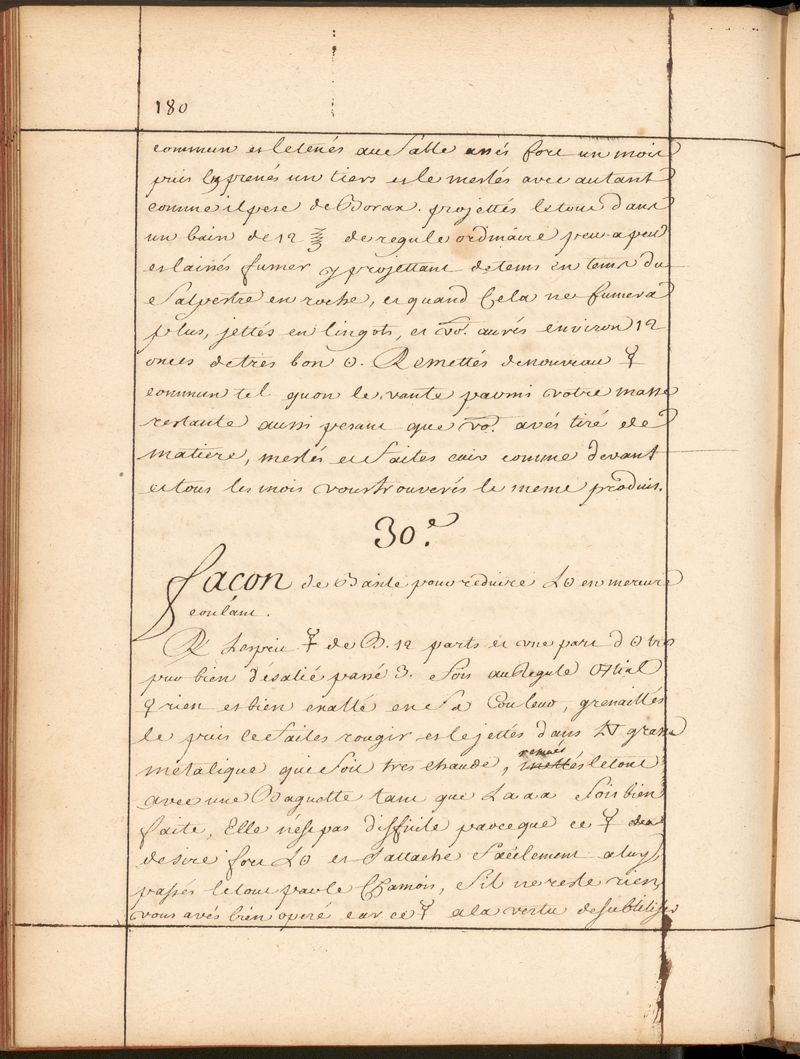 180
commun et le tenés au Sable assés fort un mois
puis Enprenés un tiers et le meslés avec autant
comme il pese de Borax. projettés le tout dans
un bain de 12 ℥ de regule ordinaire peu a peu
et laissés fumer y projettant de tems en tems du
Salpestre en roche, et quand Cela ne fumera
plus, jettés en lingots, et vo⁹. aurés environ 12
onces de tres bon ☉. Remettés denouveau ☿
commun tel quon le vante parmi votre masse
restante aussi pesant que vo⁹. avés tiré de
matiere, meslés et faites cuir comme devant
et tous les mois vous trouverés le meme produit.
30.e
façon de Basile pour réduire L☉ en mercure
coulant.
℞ Lesprit ☿ de B. 12 parts et une part d☉ tres
pur bien désalié passé 3. fois au Regule
☿rien et bien exalté en Sa Couleur, grenaillés
le puis le faites rougir et le jettés dans
métalique qui Soit tres chaude, remués le tout
avec une Baguette tant que L aaa Soit bien
faite, Elle nest pas difficile parceque ce ☿
desire fort L☉ et Sattache facilement a luy,
passés le tout par le Chamois, Sil ne reste rien
vous avés bien operé car ce ☿ a la vertu de subtiliser